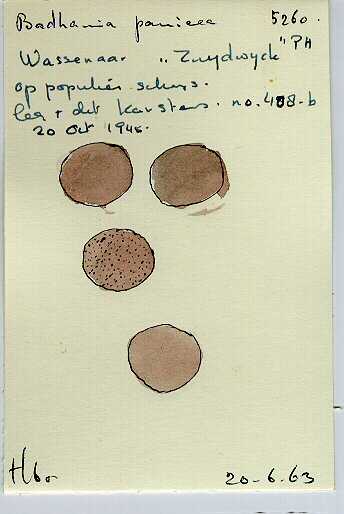 Badhamia panicea 5260.
Wassenaar „Zuydwyck" PH
op populier schors.
leg + det Karstens. no. 488-b
20 Oct 1945.
20-6-63